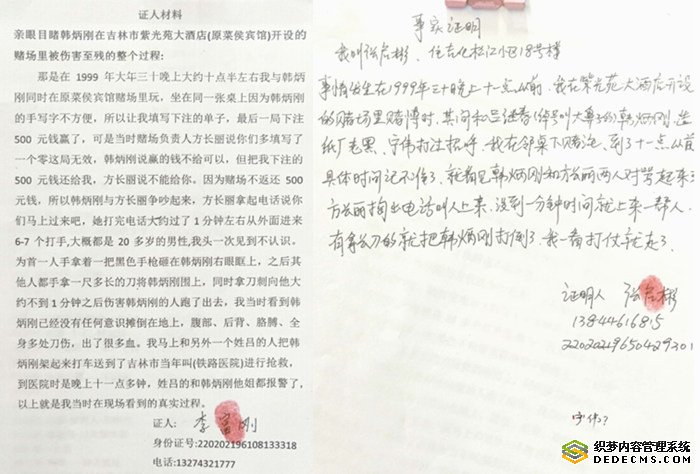 证人材料
亲眼目睹韩炳刚在吉林市紫光苑大酒店(原菜侯宾馆)开设的
赌场里被伤害至残的整个过程:
那是在 1999 年大年三十晚上大约十点半左右我与韩炳
刚同时在原菜侯宾馆赌场里玩，坐在同一张桌上因为韩炳刚
的手写字不方便，所以让我填写下注的单子，最后一局下注
500 元钱赢了，可是当时赌场负责人方长丽说你们多填写了
一个零这局无效，韩炳刚说赢的钱不给可以，但把我下注的
500 元钱还给我，方长丽说不能给你。因为赌场不返还 500
元钱，所以韩炳刚与方长丽争吵起来，方长丽拿起电话说你
们马上过来吧，她打完电话大约过了 1 分钟左右从外面进来
6-7 个打手,大概都是 20 多岁的男性,我头一次见到不认识。
为首一人手拿着一把黑色手枪砸在韩炳刚右眼眶上，之后其
他人都手拿一尺多长的刀将韩炳刚围上，同时拿刀刺向他大
约不到 1 分钟之后伤害韩炳刚的人跑了出去，我当时看到韩
炳刚已经没有任何意识摊倒在地上，腹部、后背、胳膊、全
身多处刀伤，出了很多血。我马上和另外一个姓吕的人把韩
炳刚架起来打车送到了吉林市当年叫(铁路医院)进行抢救，
到医院时是晚上十一点多钟，姓吕的和韩炳刚他姐都报警了，
以上就是我当时在现场看到的真实过程。
证人: 李富刚
身份证号:220202196108133318
电话:13274321777
事实证明
我叫张启彬，住在化松江小区18号楼
事情发生在1999年三十晚上十一点以前，我在紫光苑大酒店开设
的赌场里赌博时，其间和吕继春(绰号叫大单子)的韩炳刚、造
纸厂老黑、宇伟打过招呼，我在邻桌下赌注，到了十一点以前
具体时间记不清了，就看见韩炳刚和方长丽两人对骂起来了
方长丽掏出电话叫人上来，没到一分钟时间就上来一帮人，
有拿长刀的就把韩炳刚打倒了，我一看打仗就走了。
证明人 张启彬
13844616815
22020219650429301
宇伟？
织梦内容管理系统
DEDECMS.COM